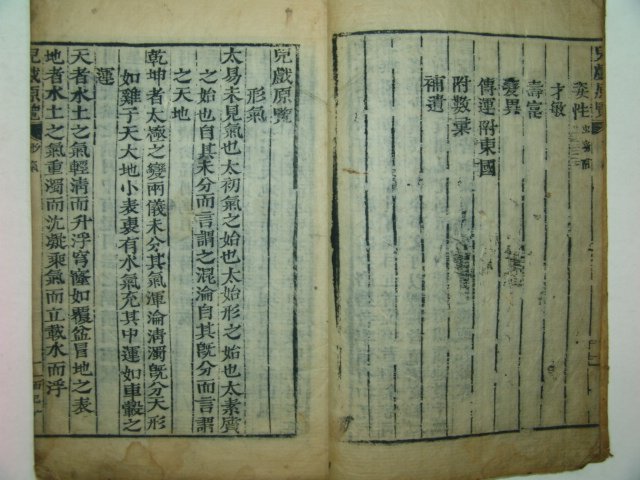 兒戲原覽
稟性
才敏
壽富
變異
傳運附東國
附數彙
補遺
兒戲原覽
形氣
太易未見氣也太初氣之始也太始形之始也太素質
之始也自其未分而言謂之混淪自其旣分而言謂
之天地
乾坤者太極之變兩儀未分其氣渾淪淸濁旣分天形
如雞子天大地小表裏有水氣充其中運如車轂之
運
天者水土之氣輕淸而升浮穹窿如覆盆冒地之表
地者水土之氣重濁而沈凝乘氣而立載水而浮
兒戲原覽